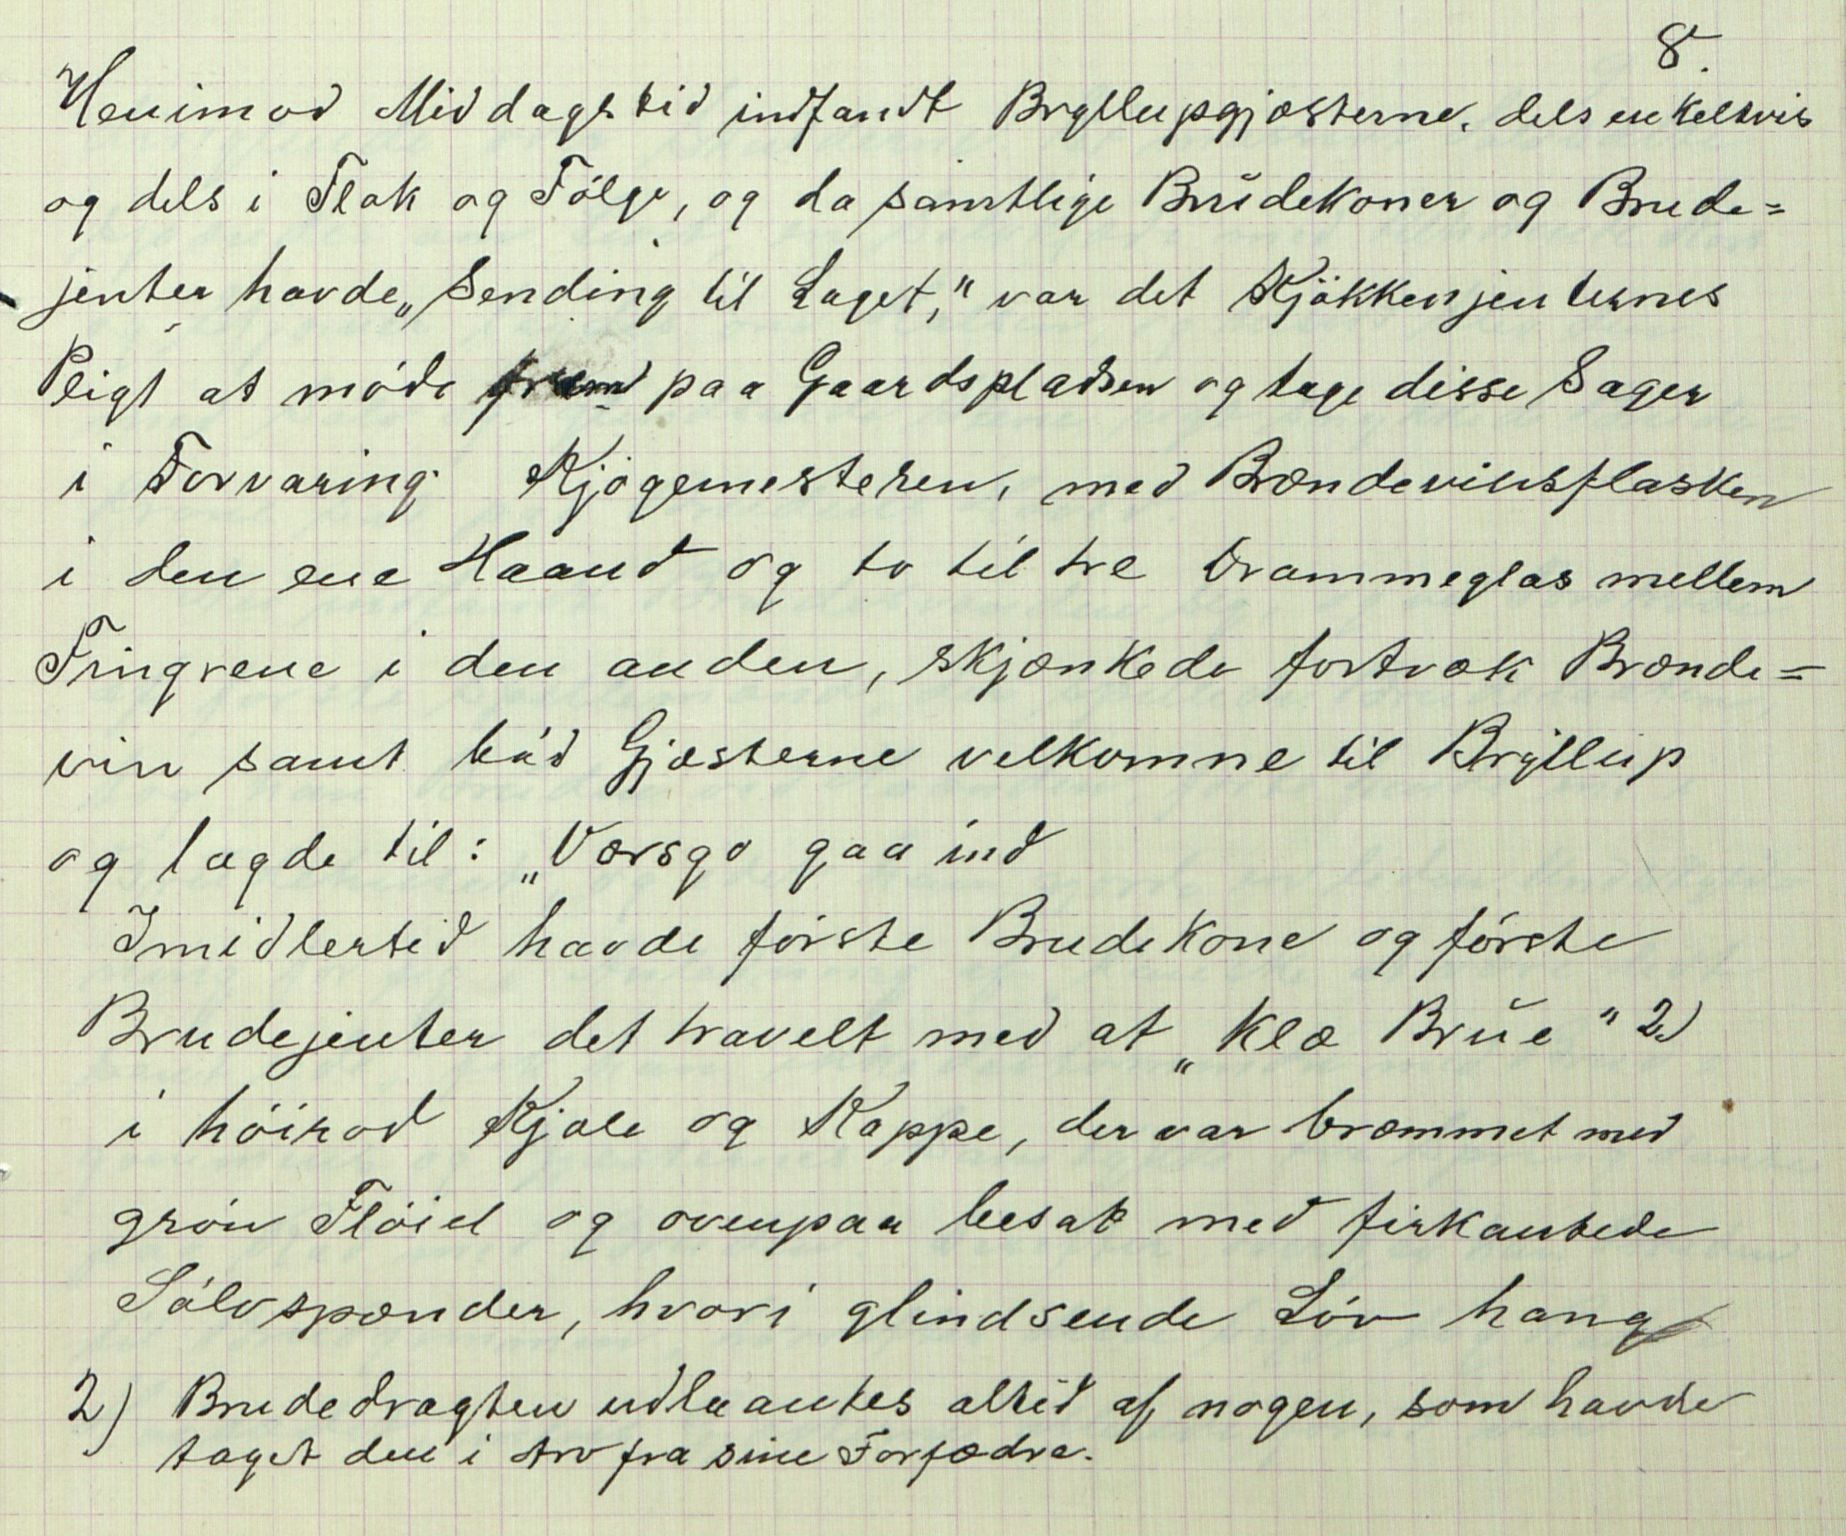 8.
Henimod Middagstid indfandt Bryllupsgjæsterne, dels enkeltvis
og dels i Flok og Følge, og da samtlige Brŭdekoner og Brude=
jenter havde „Sending til Laget," var det Kjøkkenjenternes
Pligt at møde frem paa Gaardspladsen og tage disse Sager
i Forvaring. Kjøgemesteren, med Brændevinsflasken
i den ene Haand og to til tre Drammeglas mellem
Fingrene i den anden, skjænkede fortvæk Brænde=
vin samt bød Gjæsterne velkomne til Bryllup
og lagde til: „Værsgo gaa ind
Imidlertid havde første Brudekone og første
Brudejenter det travelt med at „klæ Brŭe" 2)
i høirød Kjole og Kappe, der var bræmmet med
grøn Fløiel og ovenpaa besat med firkantede
Sølvspænder, hvori glindsende Løv hang
2) Brudedragten udlaantes altid af nogen, som havde
taget den i Arv fra sine Forfædre.